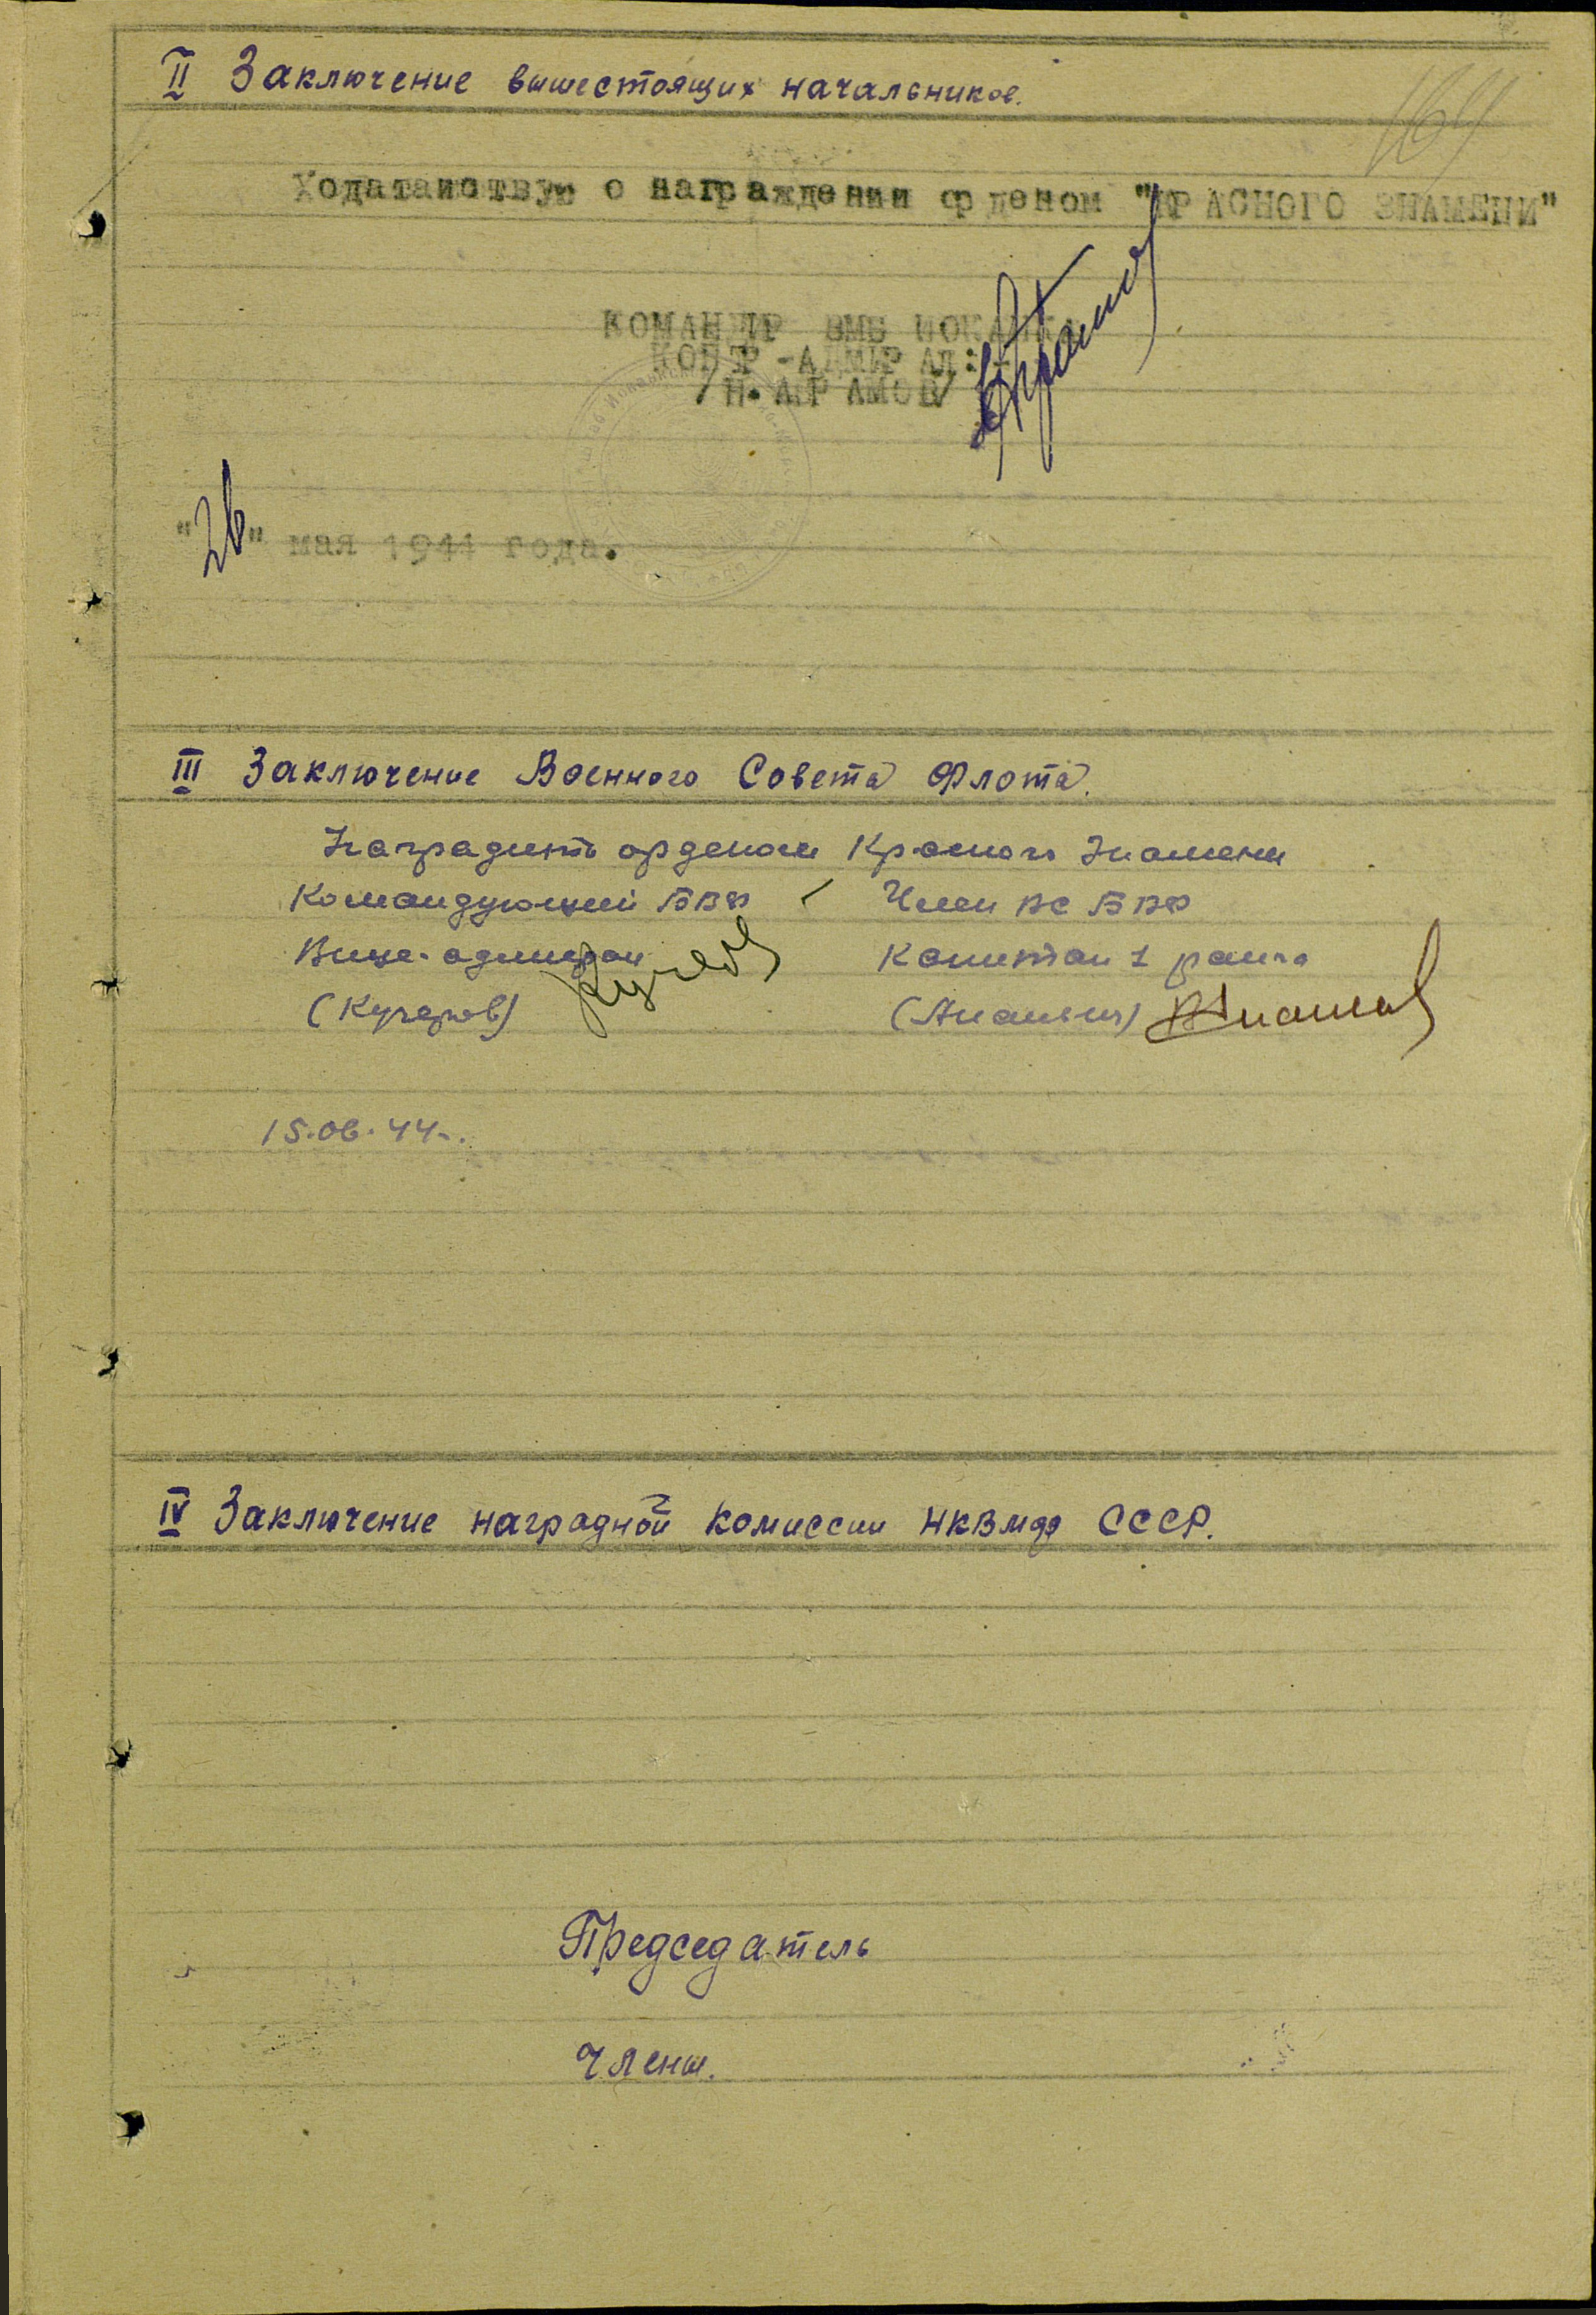 164
II Заключение вышестоящих начальников.
Ходатайствую о награждении орденом "КРАСНОГО ЗНАМЕНИ"
КОМАНДИР ВМБ ИОКАНКА
КОНТР-АДМИРАЛ:
/Н.АБРАМОВ/
"26" мая 1944 года.
III Заключение Военного Совета Флота.
Наградить орденом Красного Знамени
Командующий БВФ Член ВС БВФ
Вице-адмирал Капитан 1 ранга
(Кучеров) (Ананьич)
15.06.44.
IV Заключение наградной комиссии НКВмф СССР.
Председатель
Члены.